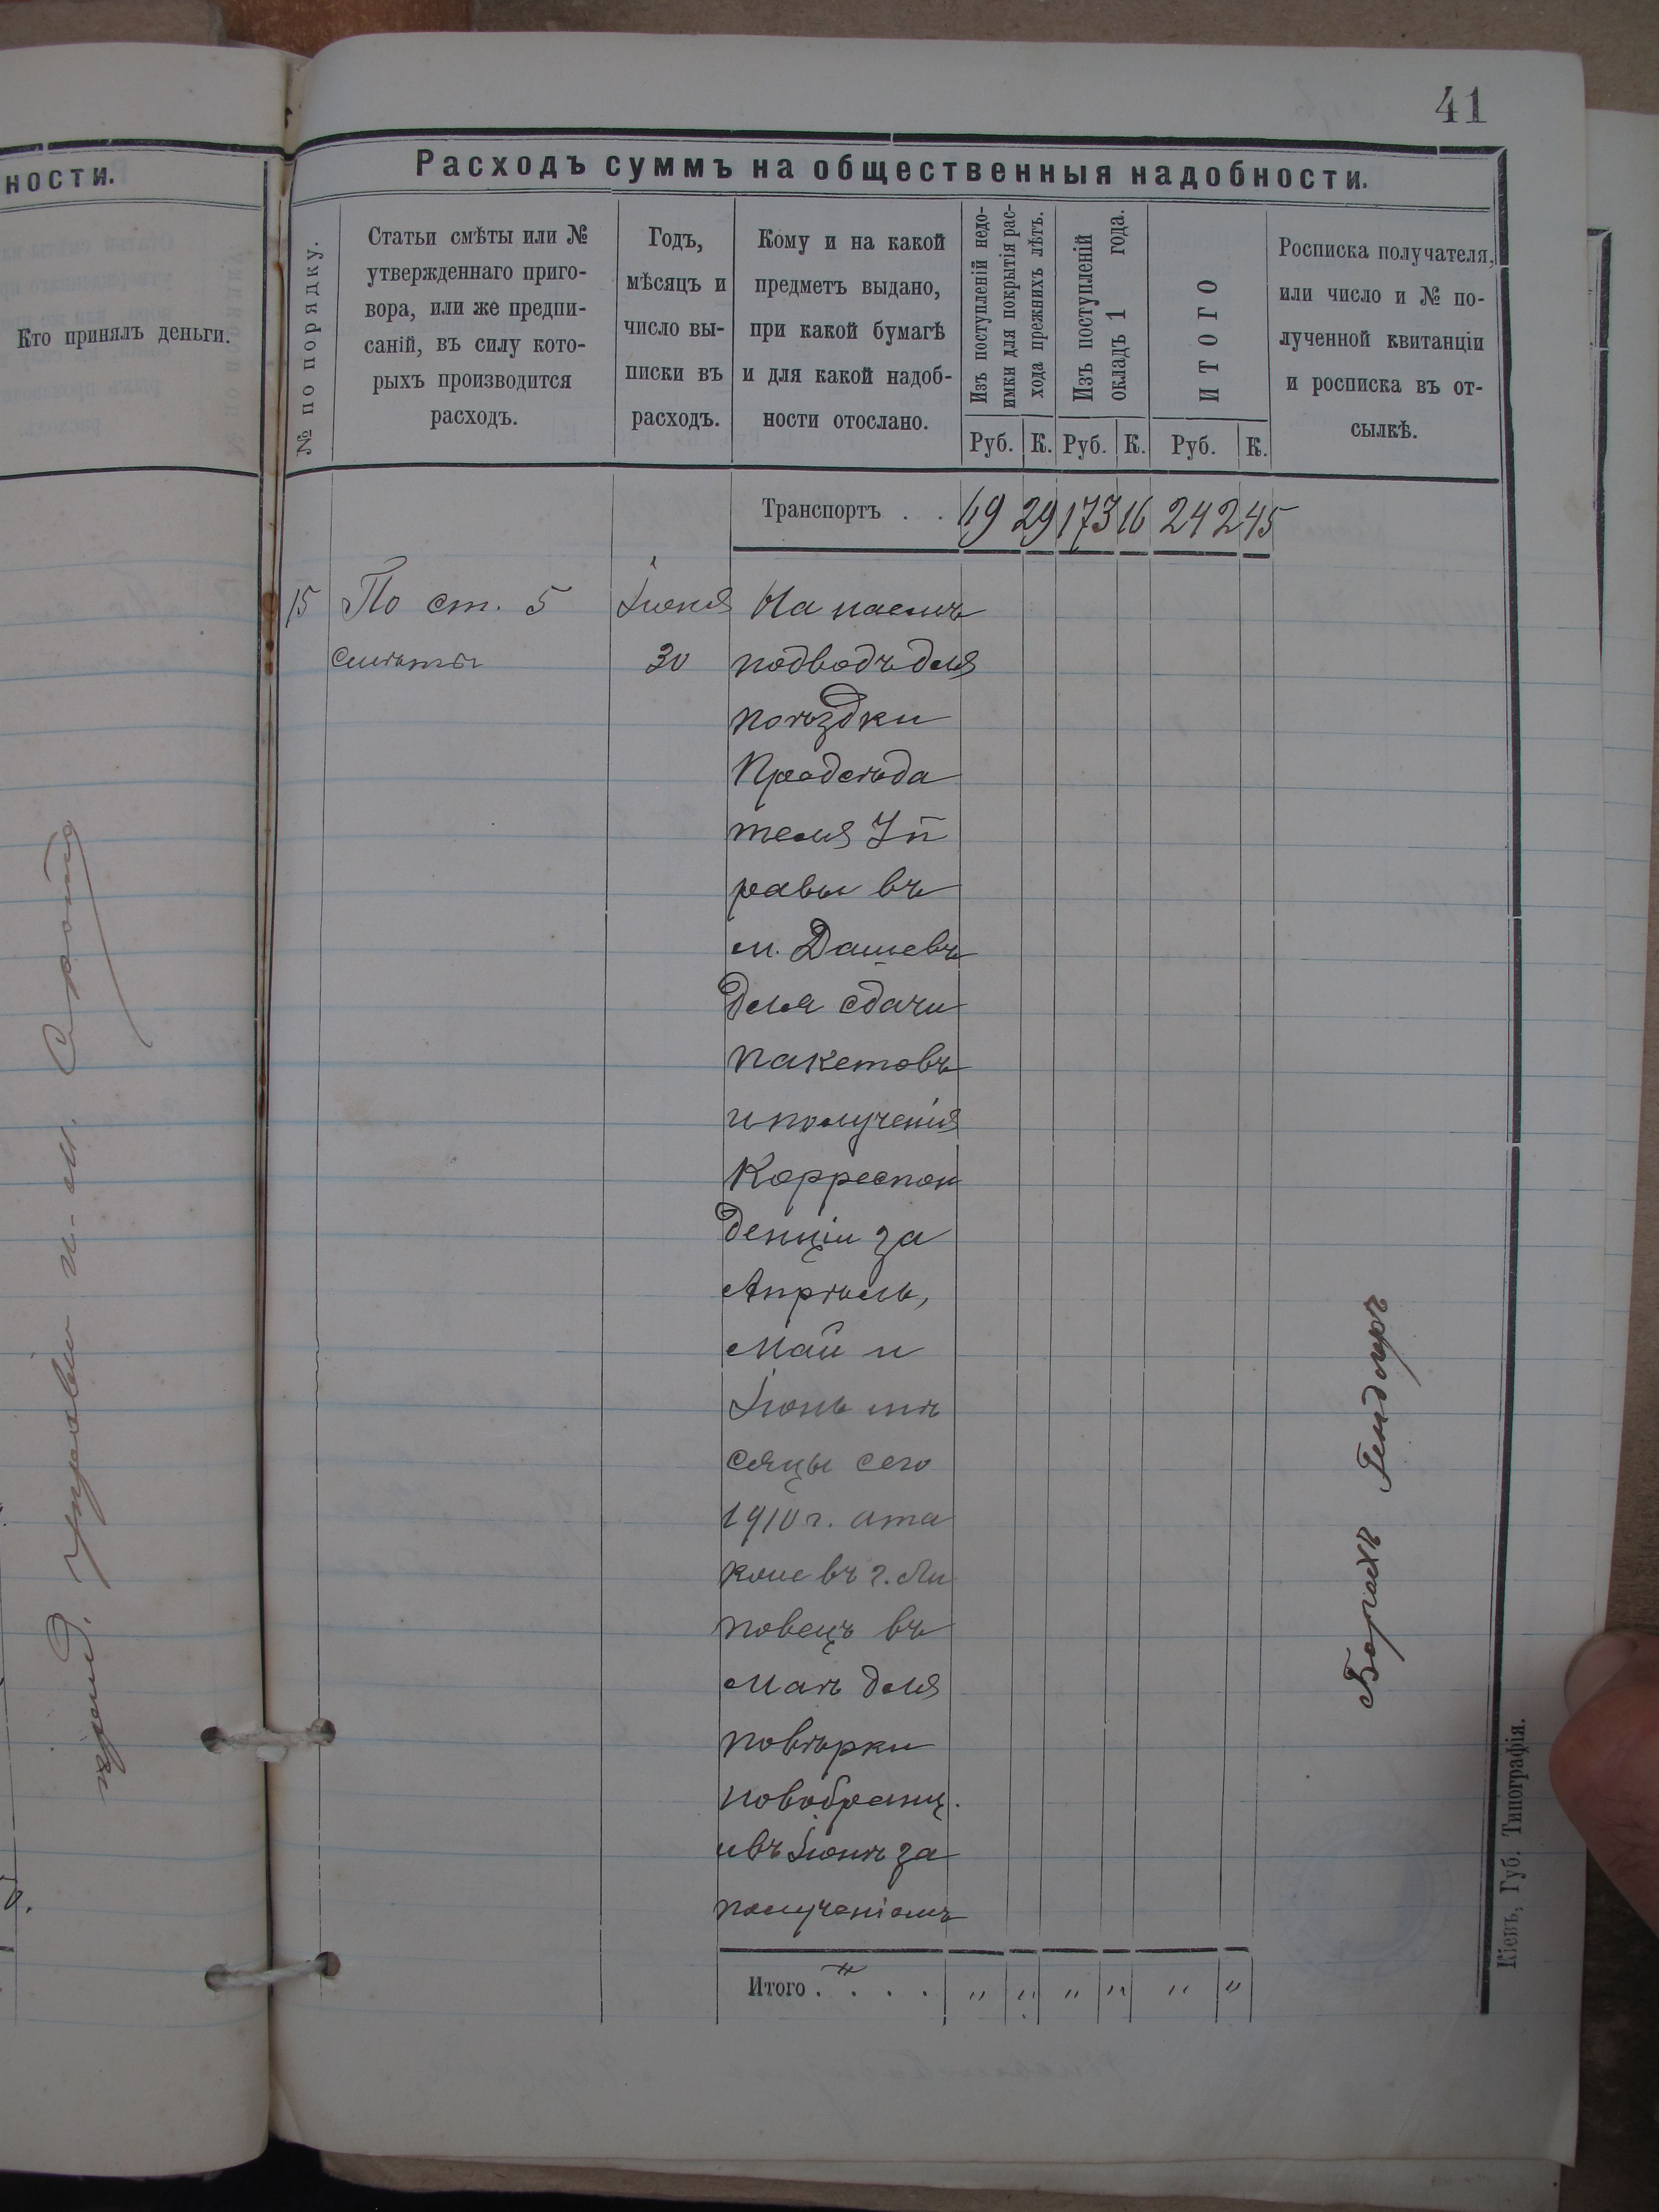 41
ности.
Кто принялъ деньги.
Расходъ суммъ на общественныя надобности.
№ по порядку.
Статьи смѣты или №
утвержденнаго приго-
вора, или же предпи-
саній, въ силу кото-
рыхъ производится
расходъ.
Годъ,
мѣсяцъ и
число вы-
писки въ
расходъ.
Кому и на какой
предметъ выдано,
при какой бумагѣ
и для какой надоб-
ности отослано.
Изъ поступленій недо-
имки для покрытія рас-
хода прежнихъ лѣтъ.
Изъ поступленій
окладъ 1 года.
ИТОГО
Росписка получателя,
или число и № по-
лученной квитанціи
и росписка въ от-
сылкѣ.
Руб. К. Руб. К. Руб. К.
Транспортъ . . 69 29 173 16 242 45
15 По ст. 5 Іюня На наемъ
смѣты 30 подводъ для
поѣздки
Предсѣда
теля Уп
равы въ
м. Дашевъ
для сдачи
пакетовъ
и полученія
Корреспон
денціи за
Апрѣль,
Май и
Іюнь мѣ
сяцы сего
1910 г. а та
кже въ г. Ли
повецъ въ
Маѣ для
повѣрки
новобранц.
и въ Іюнѣ за
полученіемъ
Итого . . . . " " " " " "
Борухъ
Кіевъ, Губ. Типографія.